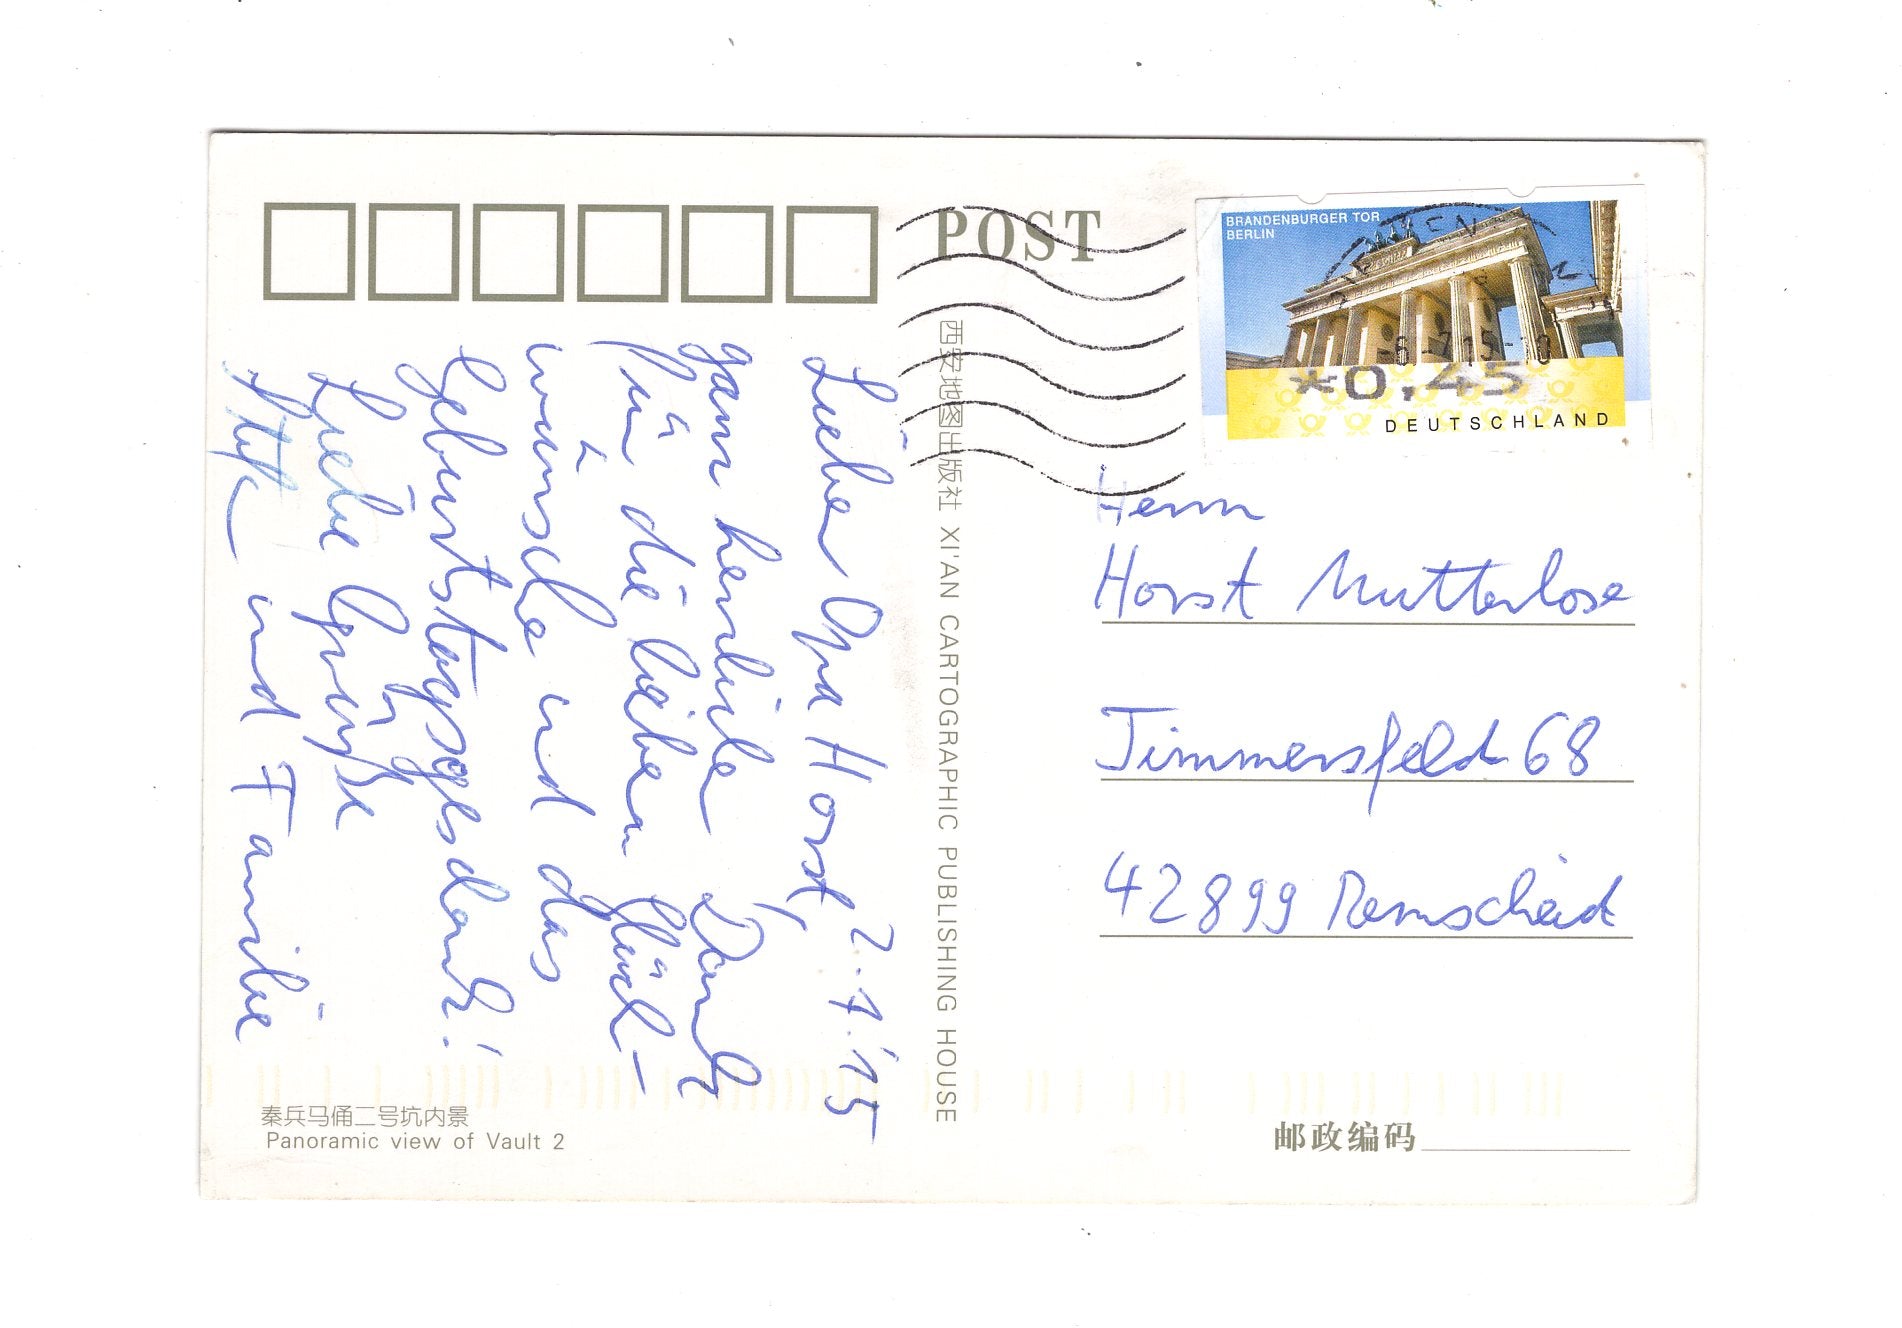 POST
BRANDENBURGER TOR
BERLIN
-6.-7.15-10
*0,45
DEUTSCHLAND
西安地图出版社 XI'AN CARTOGRAPHIC PUBLISHING HOUSE
2.7.'15
Lieber Opa Horst,
ganz herzlichen Dank
für die lieben Glück-
wünsche und das
Geburtstagsgeld
Liebe Grüße
und Familie
Herrn
Horst Mutterlose
Timmersfeld 68
42899 Remscheid
秦兵马俑二号坑内景
Panoramic view of Vault 2
邮政编码